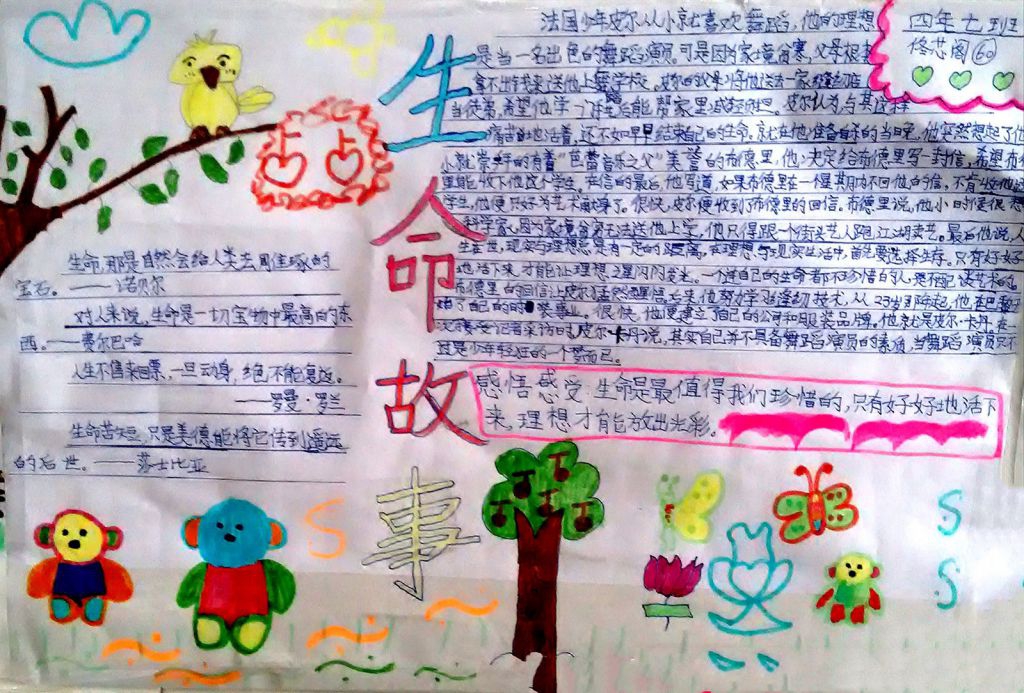 四年七班
佟芯阁 60
生命故事
点点
生命,那是自然会给人类去周佳琢的
宝石。——诺贝尔
对人来说,生命是一切宝物中最高的东
西。——费尔巴哈
人生不售来回票,一旦动身,绝不能复返。
——罗曼·罗兰
生命苦短,只是美德能将它传到遥远
的后世。——莎士比亚
法国少年皮尔从小就喜欢舞蹈,他的理想
是当一名出色的舞蹈演员。可是因为家境贫寒,父母根本
拿不出钱来送他上舞学校。皮尔的父母将他送去一家缝纫店
当徒弟,希望他学一后能帮家里减轻。皮尔认为与其这样
痛苦地活着,还不如早早结束自己的生命。就在他准备自杀的当晚,他突然想起了他
小就崇拜的有着“芭蕾音乐之父”美誉的布德里,他决定给布德里写一封信,希望布
里能收下他这个学生。在信的最后,他写道,如果布德里在一个星期内不回他的信,不肯收他这
学生,他便只好为艺术献身了。很快,皮尔便收到了布德里的回信。布德里说,他小时候很想
科学家,因为家境贫穷无法送他上学,他只得跟一个街头艺人跑江湖卖艺。最后他说,人
生在世,现实与理想总是有一定的距离,在理想与现实生活中,首先要选择生存。只有好好
地活下来,才能让理想之星闪闪发光。一个连自己的生命都不珍惜的人,是不配谈艺术的。
布德里的回信让皮尔猛然醒悟。后来,他努力学习缝纫技术,从23岁那年起,他在巴黎开
始了自己的时装事业。很快,他便建立了自己的公司和服装品牌。他就是皮尔·卡丹。在一
次接受记者采访时,皮尔·卡丹说,其实自己并不具备舞蹈演员的素质,当舞蹈演员只不
过是少年轻狂的一个梦而已。
感悟感受:生命是最值得我们珍惜的,只有好好地活下
来,理想才能放出光彩。
S
S
S